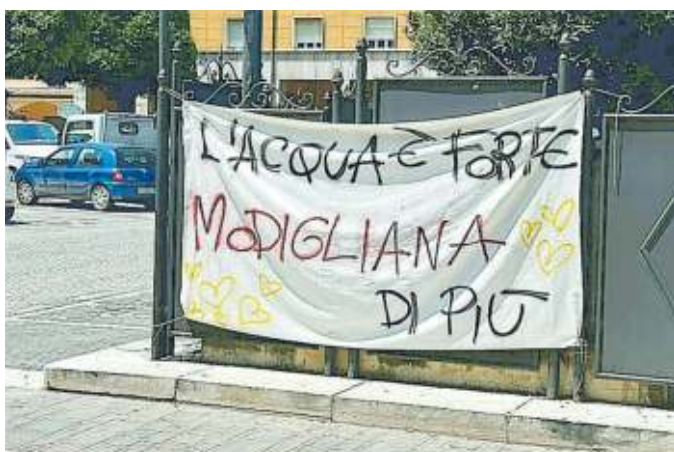 L'ACQUA È FORTE
MODIGLIANA
DI PIÙ